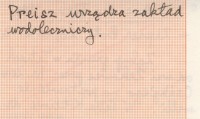 Preisz urządza zakład
wodoleczniczy.